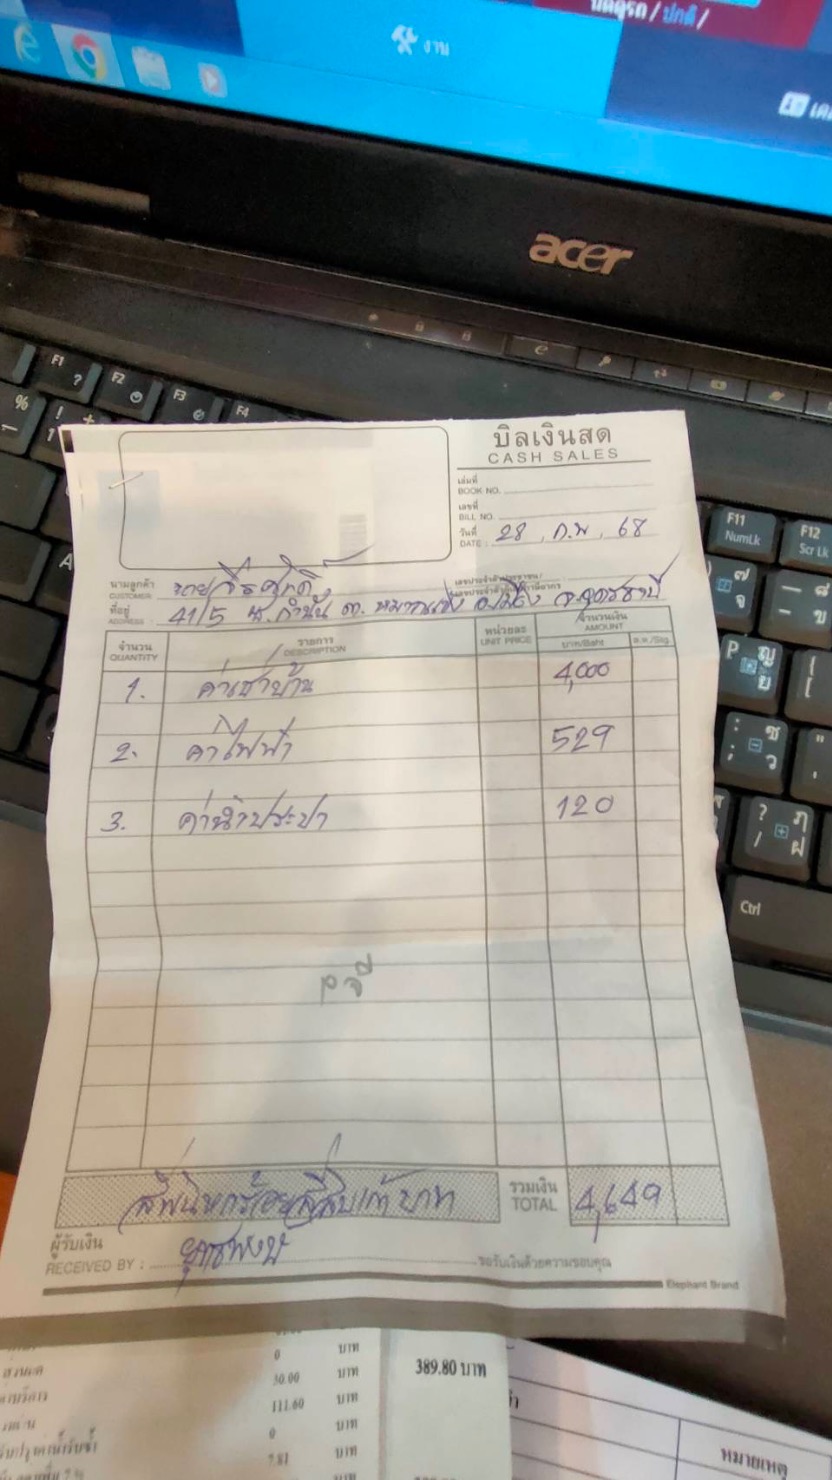 บัตคุรถ / ปกติ /
งาน
acer
F1
F2
F3
F4
บิลเงินสด
CASH SALES
เล่มที่
BOOK NO.
เลขที่
BILL NO.
วันที่
DATE : 28 , ก.พ , 68
นามลูกค้า
CUSTOMER
ที่อยู่
ADDRESS 41/5 ต. หมากแข้ง อ.เมือง จ.อุดรธานี
จำนวน รายการ หน่วยละ จำนวนเงิน
QUANTITY DESCRIPTION UNIT PRICE AMOUNT
บาท/Baht ส.ต./Stg.
1. ค่าเช่าบ้าน 4,000
2. ค่าไฟฟ้า 529
3. ค่าน้ำประปา 120
สี่พันหกร้อยสี่สิบเก้าบาท รวมเงิน
TOTAL 4,649
ผู้รับเงิน
RECEIVED BY : ขอรับเงินด้วยความขอบคุณ
Elephant Brand
F11
NumLk
F12
Scr Lk
Ctrl
0 บาท
50.00 บาท
111.60 บาท
0 บาท
7.81 บาท
389.80 บาท
หมายเหตุ